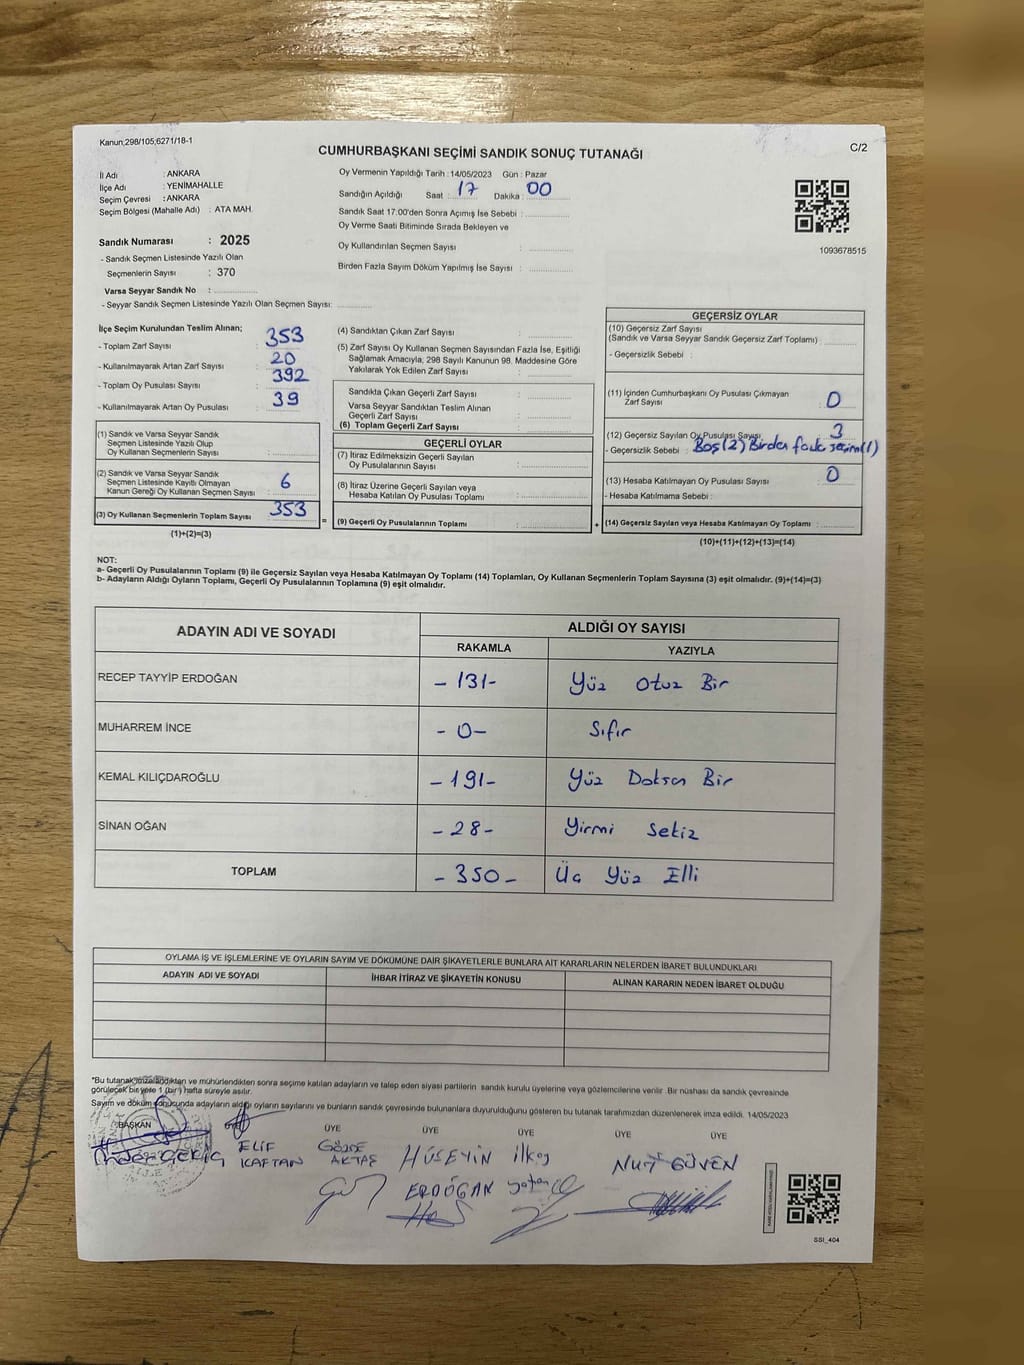 Kanun;298/105;6271/18-1
CUMHURBAŞKANI SEÇİMİ SANDIK SONUÇ TUTANAĞI
C/2
İl Adı : ANKARA
İlçe Adı : YENİMAHALLE
Seçim Çevresi : ANKARA
Seçim Bölgesi (Mahalle Adı) : ATA MAH.
Sandık Numarası : 2025
- Sandık Seçmen Listesinde Yazılı Olan
Seçmenlerin Sayısı : 370
Varsa Seyyar Sandık No :
- Seyyar Sandık Seçmen Listesinde Yazılı Olan Seçmen Sayısı:
Oy Vermenin Yapıldığı Tarih : 14/05/2023 Gün : Pazar
Sandığın Açıldığı Saat : 17 Dakika : 00
Sandık Saat 17:00'den Sonra Açımış İse Sebebi :
Oy Verme Saati Bitiminde Sırada Bekleyen ve
Oy Kullandırılan Seçmen Sayısı :
Birden Fazla Sayım Döküm Yapılmış İse Sayısı :
1093678515
İlçe Seçim Kurulundan Teslim Alınan;
- Toplam Zarf Sayısı : 353
- Kullanılmayarak Artan Zarf Sayısı : 20
- Toplam Oy Pusulası Sayısı : 392
- Kullanılmayarak Artan Oy Pusulası : 39
(1) Sandık ve Varsa Seyyar Sandık
Seçmen Listesinde Yazılı Olup
Oy Kullanan Seçmenlerin Sayısı :
(2) Sandık ve Varsa Seyyar Sandık
Seçmen Listesinde Kayıtlı Olmayan
Kanun Gereği Oy Kullanan Seçmen Sayısı : 6
(3) Oy Kullanan Seçmenlerin Toplam Sayısı : 353
(1)+(2)=(3)
(4) Sandıktan Çıkan Zarf Sayısı :
(5) Zarf Sayısı Oy Kullanan Seçmen Sayısından Fazla İse, Eşitliği
Sağlamak Amacıyla, 298 Sayılı Kanunun 98. Maddesine Göre
Yakılarak Yok Edilen Zarf Sayısı :
Sandıkta Çıkan Geçerli Zarf Sayısı :
Varsa Seyyar Sandıktan Teslim Alınan
Geçerli Zarf Sayısı :
(6) Toplam Geçerli Zarf Sayısı :
GEÇERLİ OYLAR
(7) İtiraz Edilmeksizin Geçerli Sayılan
Oy Pusulalarının Sayısı :
(8) İtiraz Üzerine Geçerli Sayılan veya
Hesaba Katılan Oy Pusulası Toplamı :
= (9) Geçerli Oy Pusulalarının Toplamı :
GEÇERSİZ OYLAR
(10) Geçersiz Zarf Sayısı
(Sandık ve Varsa Seyyar Sandık Geçersiz Zarf Toplamı) :
- Geçersizlik Sebebi :
(11) İçinden Cumhurbaşkanı Oy Pusulası Çıkmayan
Zarf Sayısı : 0
(12) Geçersiz Sayılan Oy Pusulası Sayısı : 3
- Geçersizlik Sebebi : Boş(2) Birden fazla seçim(1)
(13) Hesaba Katılmayan Oy Pusulası Sayısı : 0
- Hesaba Katılmama Sebebi :
+ (14) Geçersiz Sayılan veya Hesaba Katılmayan Oy Toplamı :
(10)+(11)+(12)+(13)=(14)
NOT:
a- Geçerli Oy Pusulalarının Toplamı (9) ile Geçersiz Sayılan veya Hesaba Katılmayan Oy Toplamı (14) Toplamları, Oy Kullanan Seçmenlerin Toplam Sayısına (3) eşit olmalıdır. (9)+(14)=(3)
b- Adayların Aldığı Oyların Toplamı, Geçerli Oy Pusulalarının Toplamına (9) eşit olmalıdır.
ADAYIN ADI VE SOYADI
ALDIĞI OY SAYISI
RAKAMLA YAZIYLA
RECEP TAYYİP ERDOĞAN - 131 - Yüz Otuz Bir
MUHARREM İNCE - 0 - Sıfır
KEMAL KILIÇDAROĞLU - 191 - Yüz Doksan Bir
SİNAN OĞAN - 28 - Yirmi Sekiz
TOPLAM - 350 - Üç Yüz Elli
OYLAMA İŞ VE İŞLEMLERİNE VE OYLARIN SAYIM VE DÖKÜMÜNE DAİR ŞİKAYETLERLE BUNLARA AİT KARARLARIN NELERDEN İBARET BULUNDUKLARI
ADAYIN ADI VE SOYADI İHBAR İTİRAZ VE ŞİKAYETİN KONUSU ALINAN KARARIN NEDEN İBARET OLDUĞU
*Bu tutanak imzalandıktan ve mühürlendikten sonra seçime katılan adayların ve talep eden siyasi partilerin sandık kurulu üyelerine veya gözlemcilerine verilir. Bir nüshası da sandık çevresinde
görülecek bir yere 1 (bir) hafta süreyle asılır.
Sayım ve döküm sonucunda adayların aldığı oyların sayılarını ve bunların sandık çevresinde bulunanlara duyurulduğunu gösteren bu tutanak tarafımızdan düzenlenerek imza edildi. 14/05/2023
BAŞKAN ÜYE ÜYE ÜYE ÜYE ÜYE
ELİF
KAFTAN
GÖZDE
AKTAŞ
HÜSEYİN
ERDOĞAN
ilkay
NURİ GÜVEN
SSI_404